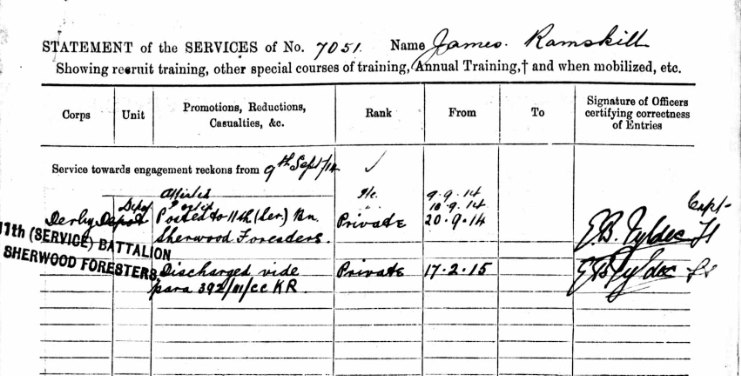 STATEMENT of the SERVICES of No. 7051 Name James. Ramskill
Showing recruit training, other special courses of training, Annual Training,† and when mobilized, etc.
Corps Unit Promotions, Reductions, Casualties, &c. Rank From To Signature of Officers certifying correctness of Entries
Service towards engagement reckons from 9th Sept/14 ✓
Attested Pte. 9.9.14
Depot Posted " 10.9.14
Derby Depot Posted to 11th (Ser.) Bn. Private 20.9.14 Capt
Sherwood Foresders.
11th (SERVICE) BATTALION
SHERWOOD FORESTERS.
Discharged vide Private 17.2.15
para 392/III/cc KR